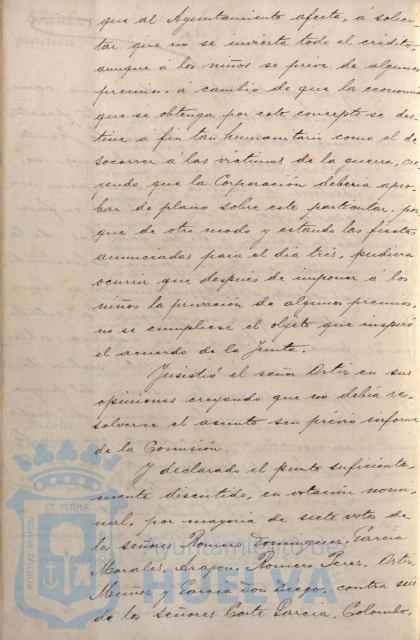 que al Ayuntamiento afecta, á solici-
tar que no se invierta todo el crédito,
aunque á los niños se prive de algunos
premios, á cambio de que la economía
que se obtenga por este concepto se des-
tine á fin tan humanitario como el de
socorrer á las victimas de la guerra, cre-
yendo que la Corporación debería apro-
bar de plano sobre este particular, por
que de otro modo y estando las fiestas
anunciadas para el dia tres, pudiera
ocurrir que después de imponer á los
niños la privación de algunos premios,
no se cumpliese el objeto que inspiró
el acuerdo de la Junta.
Insistió el señor Ortiz en sus
opiniones creyendo que no debía re-
solverse el asunto sin prévio informe
de la Comisión.
Y declarado el punto suficiente-
mente discutido, en votación nomi-
nal, por mayoria de siete votos de
los señores Romero Dominguez, Garcia
Morales, Aragon, Romero Perez, Ortiz,
Muñoz y Garcia Don Diego, contra seis
de los señores Corte Garcia, Colombo,
PORTUS MARIS
ET TERRÆ
Ayuntamiento de
HUELVA